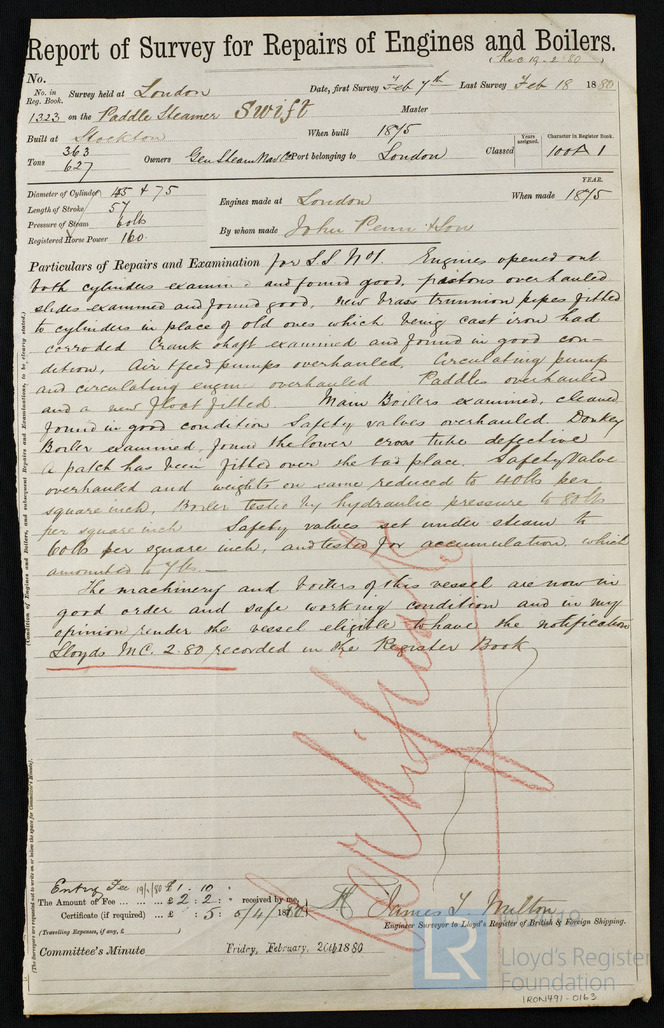 Report of Survey for Repairs of Engines and Boilers.
(Rec 19-2 80)
No.
No. in Reg. Book. Survey held at London Date, first Survey Feb 7th Last Survey Feb 18 1880
1323 on the Paddle Steamer Swift Master
Built at Stockton When built 1875
Tons 363 627 Owners Gen Steam Nav Co Port belonging to London Classed Years assigned. Character in Register Book. 100A 1
YEAR.
Diameter of Cylinder 45 + 75
Length of Stroke 57
Engines made at London When made 1875
Pressure of Steam 60lbs
Registered Horse Power 160.
By whom made John Penn & Son
Particulars of Repairs and Examination for S.S. No1. Engines opened out
both cylinders examined and found good, pistons overhauled
slides examined and found good, new brass trunnion pipes fitted
to cylinders in place of old ones which being cast iron had
corroded Crank shaft examined and found in good con-
dition, Air & feed pumps overhauled, Circulating pump
and circulating engine overhauled Paddles overhauled
and a new float fitted. Main Boilers examined, cleaned
found in good condition Safety valves overhauled. Donkey
Boiler examined, found the lower cross tube defective
a patch has been fitted over the bad place. Safety Valve
overhauled and weights on same reduced to 40lbs per
square inch, Boiler tested by hydraulic pressure to 80lbs
per square inch Safety valves set under steam to
60lbs per square inch, and tested for accumulation, which
amounted to 7lbs.—
The machinery and boilers of this vessel are now in
good order and safe working condition and in my
opinion render the vessel eligible to have the notification
Lloyds M.C. 2.80 recorded in the Register Book
Certificate
(Condition of Engines and Boilers, and subsequent Repairs and Examinations, to be clearly stated.)
(The Surveyors are requested not to write on or below the space for Committee's Minute).
Entry Fee 19/2/80 £ 1. 10. "
The Amount of Fee ... £ 2 : 2 : " received by me,
Certificate (if required) ... £ : 5 : 5/4/1880
(Travelling Expenses, if any, £ )
James T. Milton
Engineer Surveyor to Lloyd's Register of British & Foreign Shipping.
Committee's Minute Friday, February, 20th 1880
LR
Lloyd's Register
Foundation
IRON491-0163